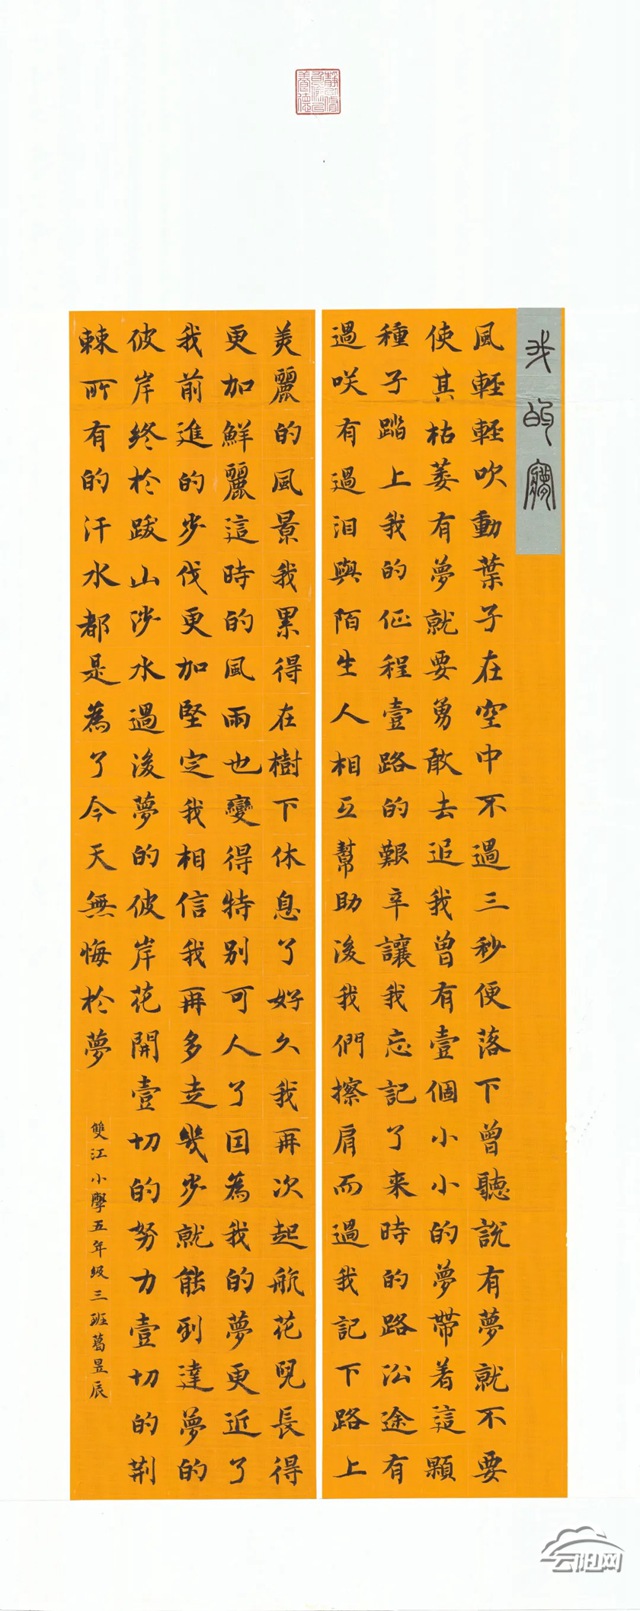 我的夢
風輕輕吹動葉子在空中不過三秒便落下曾聽説有夢就不要
使其枯萎有夢就要勇敢去追我曾有壹個小小的夢帶着這顆
種子踏上我的征程壹路的艱辛讓我忘記了来時的路沿途有
過咲有過泪與陌生人相互幫助後我們擦肩而過我記下路上
美麗的風景我累得在樹下休息了好久我再次起航花兒長得
更加鮮麗這時的風雨也變得特别可人了因為我的夢更近了
我前進的步伐更加堅定我相信我再多走幾步就能到達夢的
彼岸終於跋山涉水過後夢的彼岸花開壹切的努力壹切的荆
棘所有的汗水都是為了今天無悔於夢
雙江小學五年級三班葛昱辰
云阳网